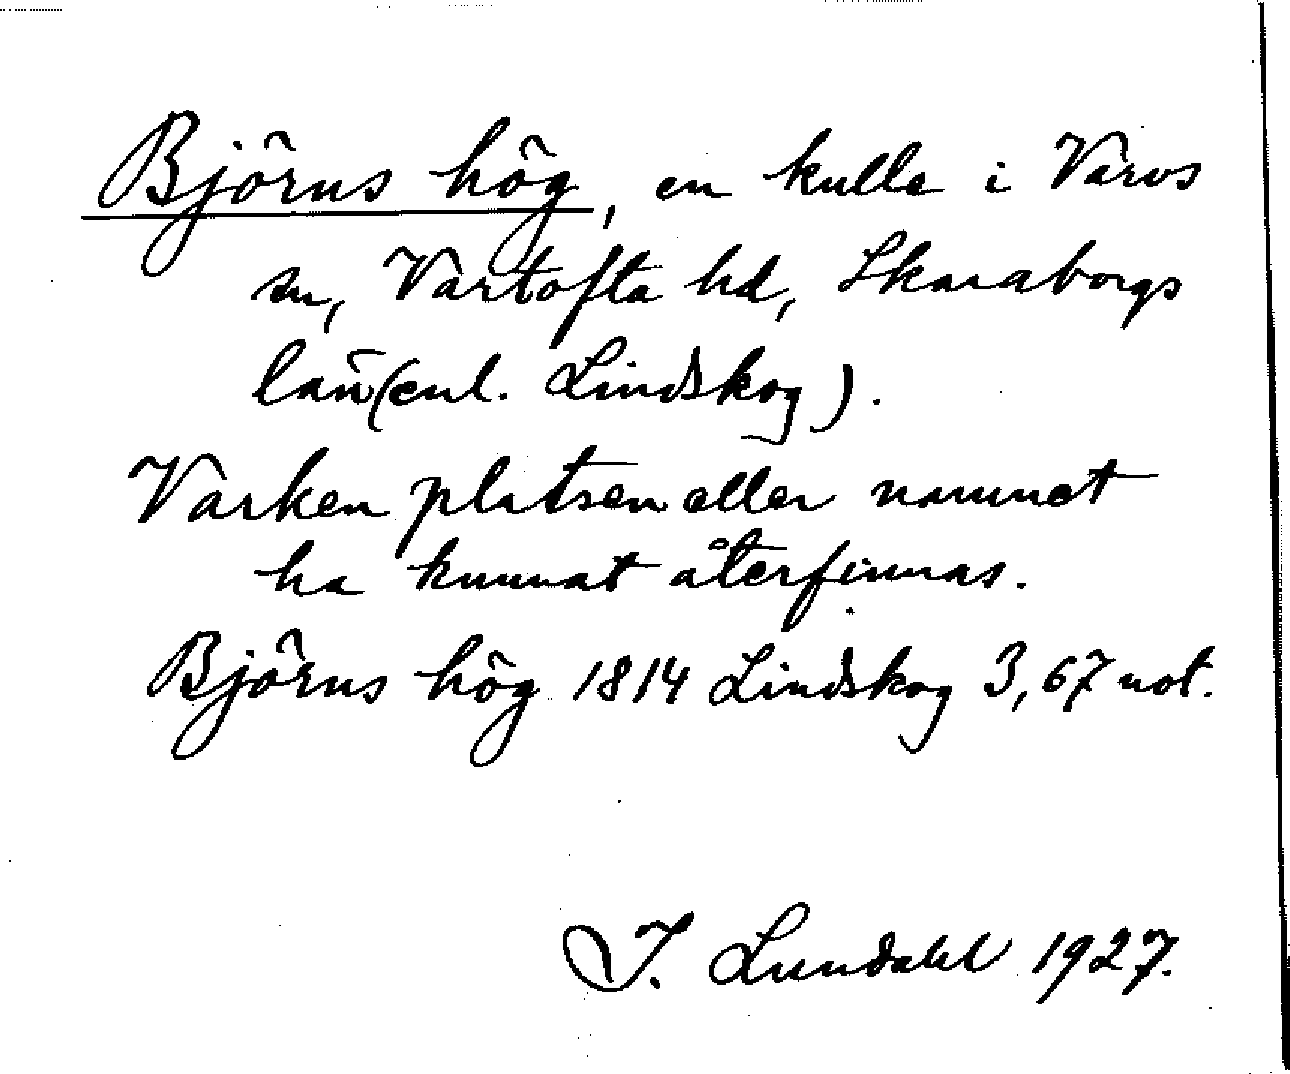 Björns hög, en kulle i Varvs
sn, Vartofta hd, Skaraborgs
län (enl. Lindskog).
Varken platsen eller namnet
ha kunnat återfinnas.
Björns hög 1814 Lindskog 3,67 not.
I. Lundahl 1927.